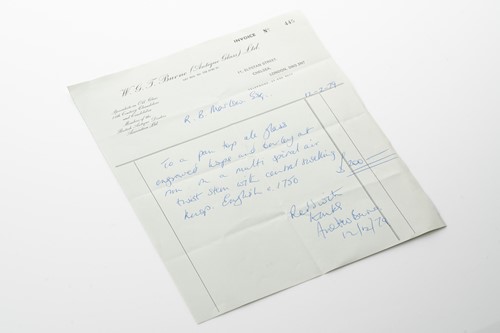 INVOICE No 445
W. G. T. Burne (Antique Glass) Ltd
11, ELYSTAN STREET,
CHELSEA,
LONDON, SW3 3NT
Specialists in Old Glass
19th Century Chandeliers
and Candelabra
Member of the
British Antique Dealers
Association Ltd
R. B. Marten Esq.
12.12.79
To a pan top ale glass
engraved hops and barley at
rim on a multi spiral air
twist stem with central swelling
knop. English c. 1750
Received with
thanks
Andrew Burne
12/12/79